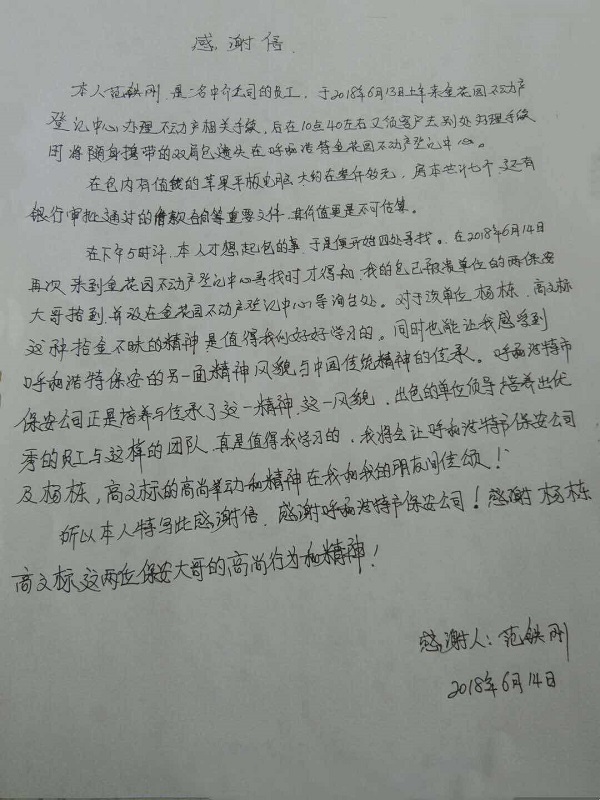 感谢信
本人范铁刚,是一名中介公司的员工,于2018年6月13日上午来金花园不动产
登记中心办理不动产相关手续,后在10点40左右又须客户去别处办理手续
因将随身携带的双肩包遗失在呼和浩特金花园不动产登记中心。
在包内有值钱的苹果平版电脑大约在叁仟多元,房本共计七个,还有
银行审批通过的借款合同等重要文件,其价值更是不可估算。
在下午5时许,本人才想起包的事,于是便开始四处寻找。在2018年6月14日
再次来到金花园不动产登记中心寻找时才得知,我的包已被贵单位的两保安
大哥拾到,并放在金花园不动产登记中心导询台处。对于该单位杨栋,高文标
这种拾金不昧的精神是值得我们好好学习的。同时也能让我感受到
呼和浩特保安的另一面精神风貌与中国传统精神的传承。呼和浩特市
保安公司正是培养与传承了这一精神,这一风貌,出色的单位领导培养出优
秀的员工与这样的团队,真是值得我学习的,我将会让呼和浩特市保安公司
及杨栋,高文标的高尚举动和精神在我和我的朋友间传颂!
所以本人特写此感谢信,感谢呼和浩特市保安公司!感谢杨栋
高文标这两位保安大哥的高尚行为和精神!
感谢人:范铁刚
2018年6月14日